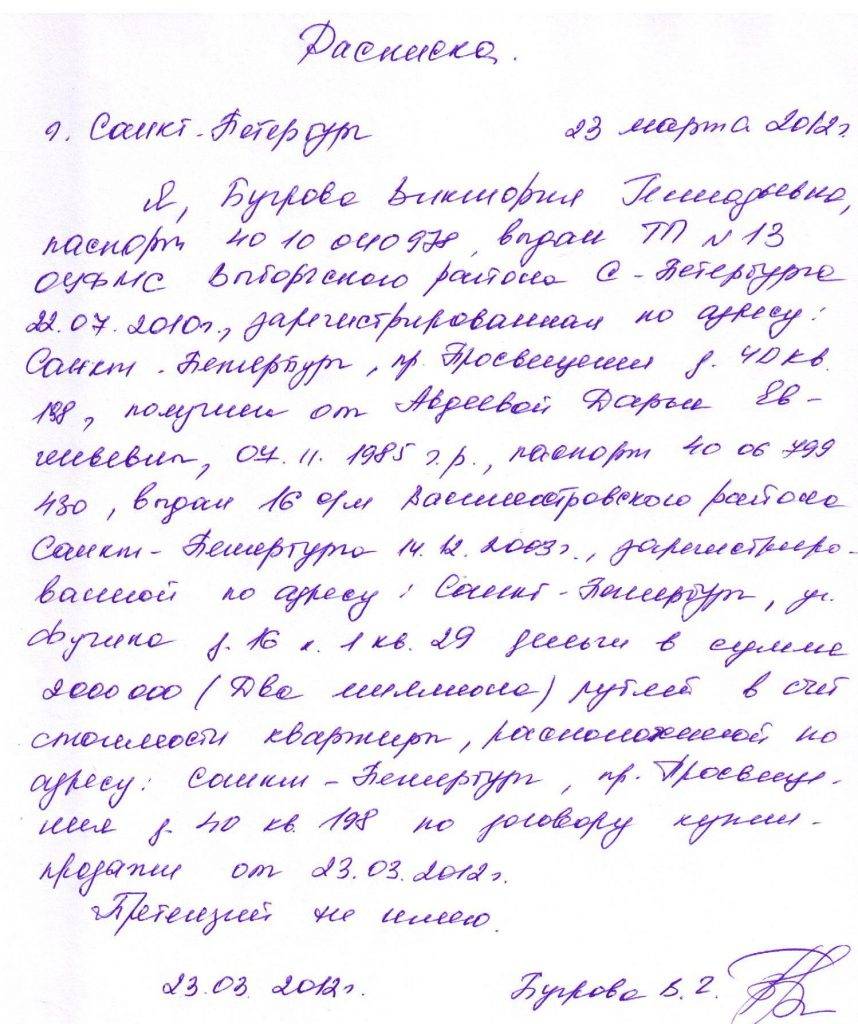 Расписка.
г. Санкт-Петербург 23 марта 2012г.
Я, Бугрова Виктория Геннадьевна,
паспорт 40 10 040978, выдан ТП N 13
ОУФМС Выборгского района С-Петербурга
22.07.2010г., зарегистрированная по адресу:
Санкт-Петербург, пр. Просвещения д. 40 кв.
198, получила от Авдеевой Дарьи Ев-
геньевны, 07.11.1985 г.р., паспорт 40 06 799
430, выдан 16 о/м Василеостровского района
Санкт-Петербурга 14.12.2003г., зарегистриро-
ванной по адресу: Санкт-Петербург, ул.
д. 16 к. 1 кв. 29 деньги в сумме
2000000 (Два миллиона) рублей в счет
стоимости квартиры, расположенной по
адресу: Санкт-Петербург, пр. Просвеще-
ния д. 40 кв. 198 по договору купли-
продажи от 23.03.2012г.
Претензий не имею.
23.03.2012г. Бугрова В. Г.